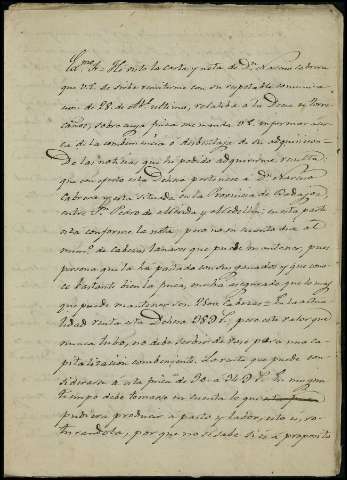 Exmo Sr. He visto la carta y nota de Dn Narciso Cabrera
que V.E. se sirve remitirme con su respetable comunica-
cion de 28 de Abl ultimo, relativa a la Dehesa
sobre cuya finca me manda V.E. informar acer-
ca de la conveniencia ó desventaja de su adquisicion.
De las noticias que he podido adquirir resulta
que en efecto esta Dehesa pertenece a Dn Narciso
Cabrera y esta situada en la Provincia de Badajoz,
entre Sn Pedro de Merida y Medellin; en esta parte
esta conforme la nota; pero no en cuanto al
numo de cabezas lanares que puede mantener, pues
persona que la ha pastado con sus ganados y que cono-
ce bastante bien la finca, me ha asegurado que lo mas
que puede mantener son cabezas. En la actua-
lidad renta esta Dehesa pero este valor que
nunca tubo, no debe servir de base para una ca-
pitalizacion conveniente. La renta que puede con-
siderarse a esta finca es de 30 a En ningun
tiempo debe tomarse en cuenta lo que
pudiera producir a pasto y labor, esto es, ro-
turandola, por que no se sabe si es a proposito